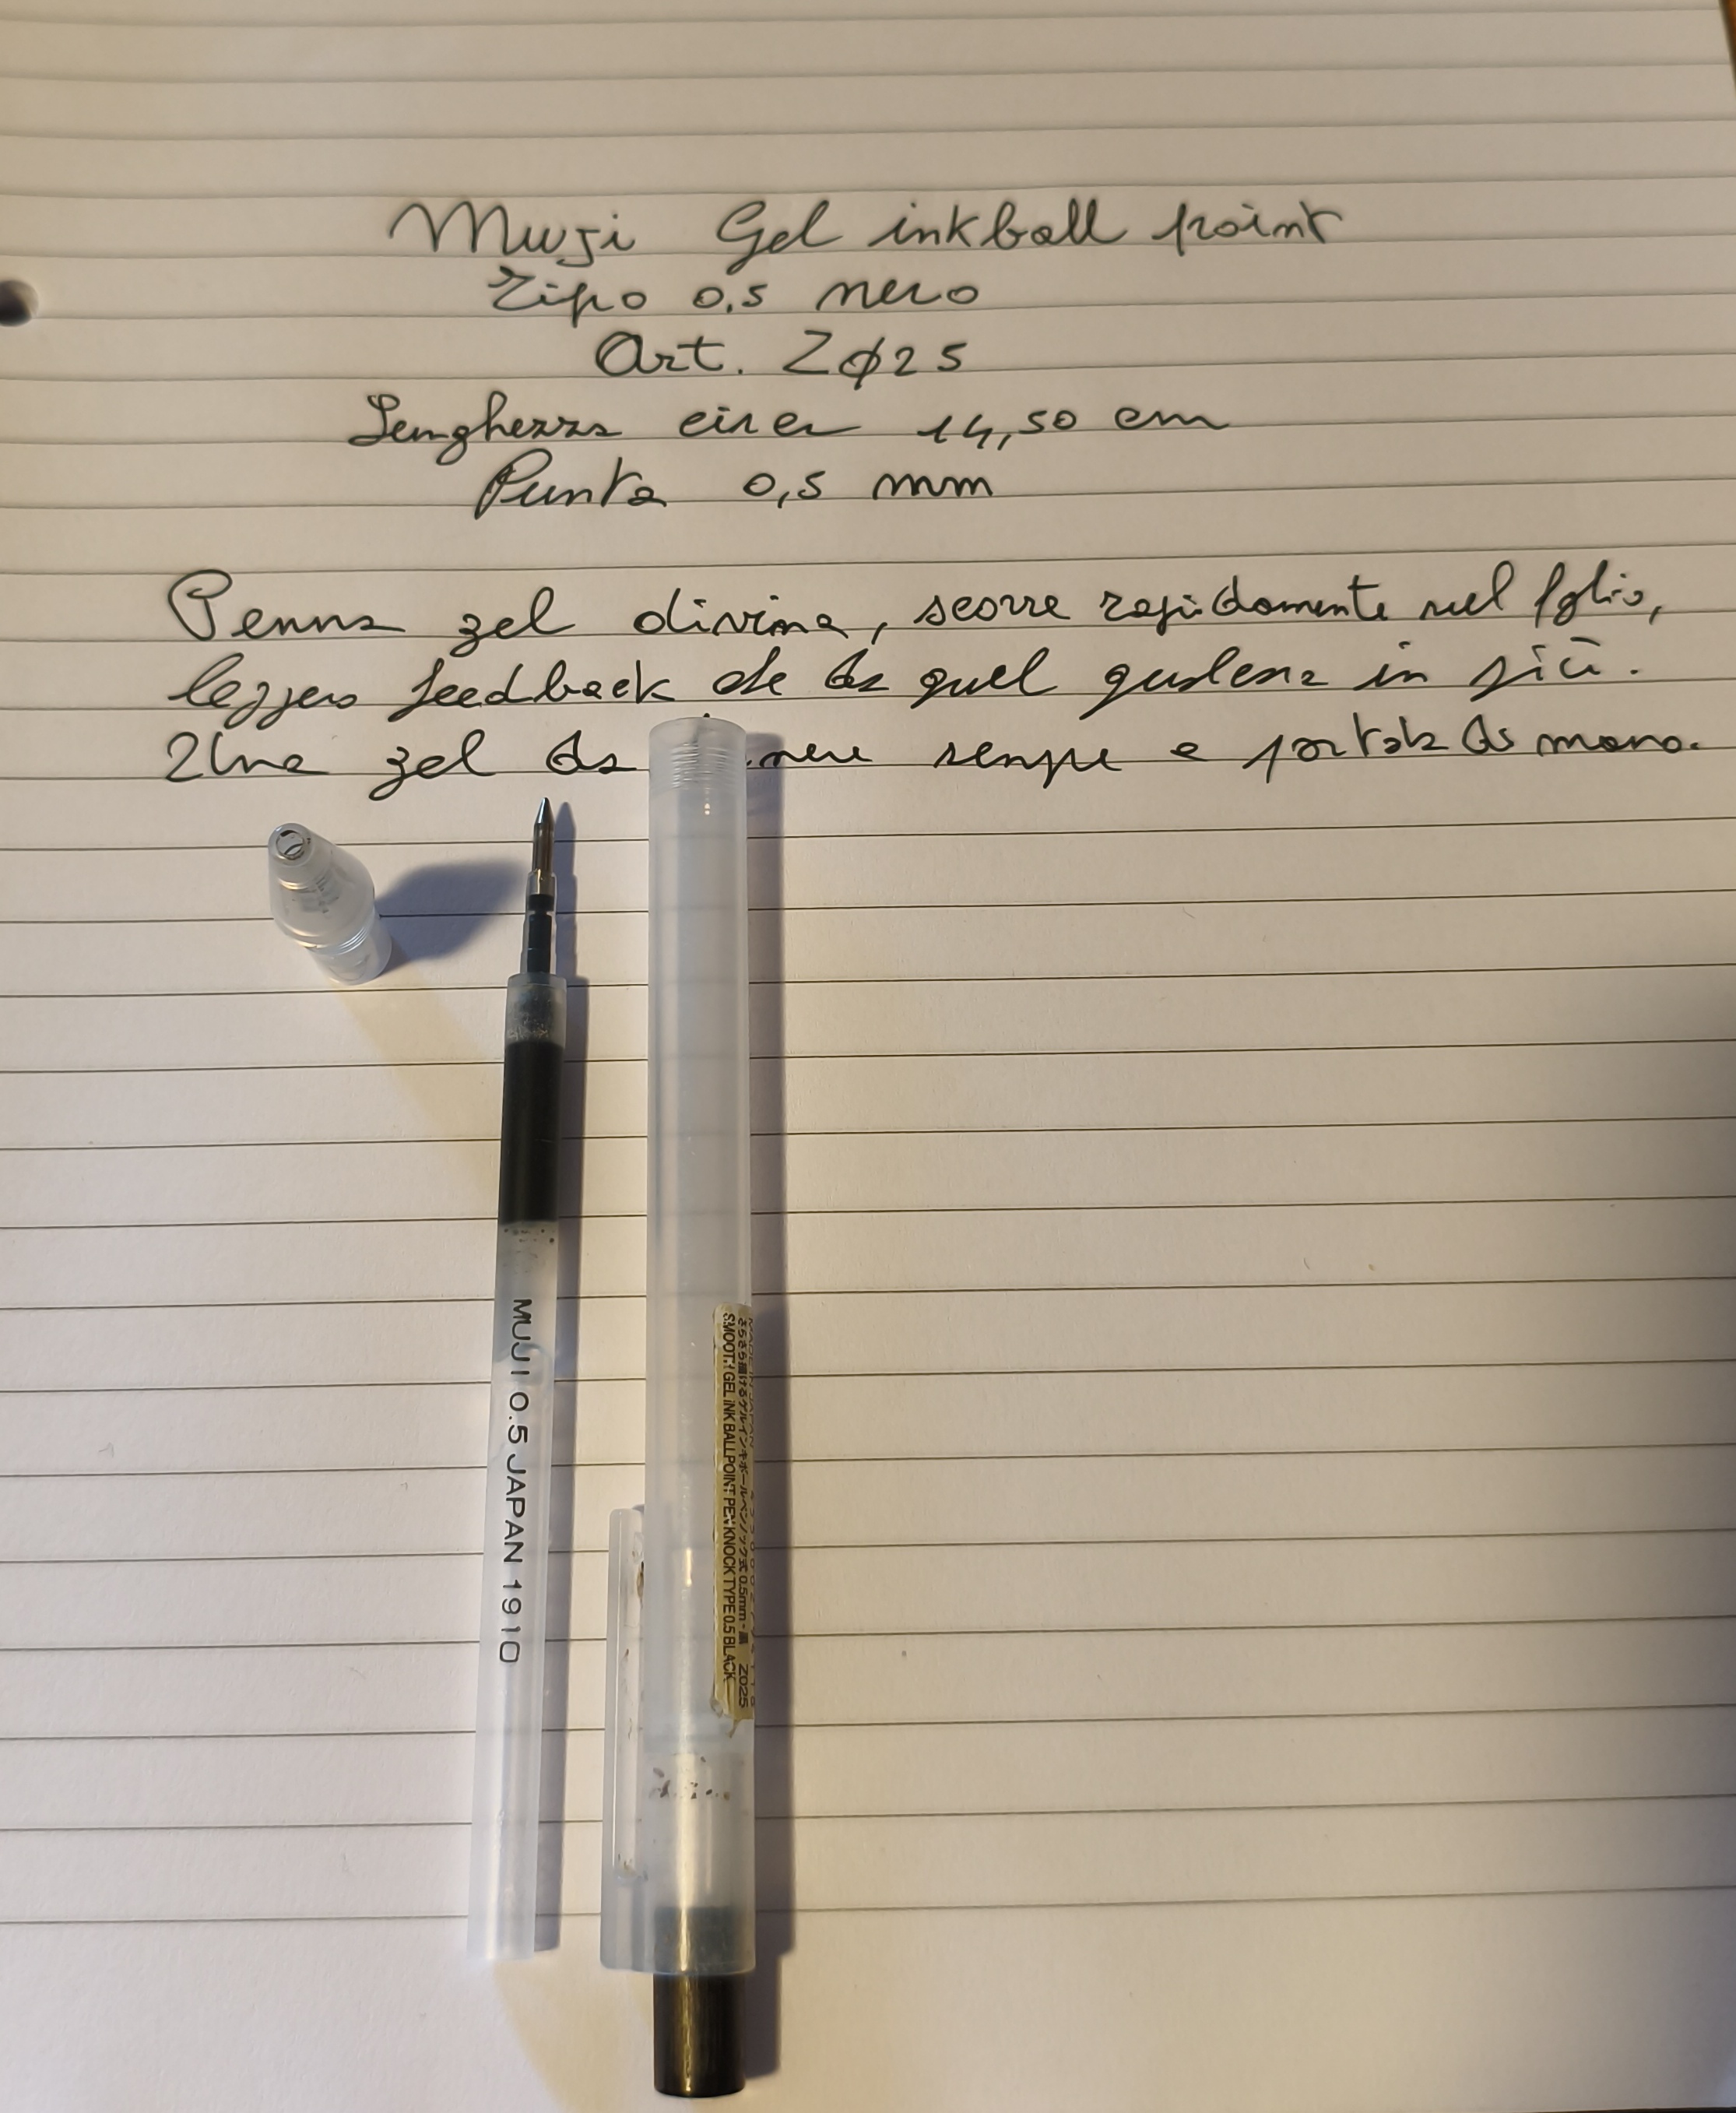 Muji Gel inkball point
Tipo 0,5 nero
Art. ZØ25
Lunghezza circa 14,50 cm
Punta 0,5 mm
Penna gel divina, scorre rapidamente nel foglio,
leggero feedback che da quel qualcosa in più.
Una gel da sempre a portata di mano.
MUJI 0.5 JAPAN 1910
MADE IN JAPAN
さらさら描けるゲルインキボールペンノック式 0.5mm・黒 Z025
SMOOTH GEL INK BALLPOINT PEN KNOCK TYPE 0.5 BLACK